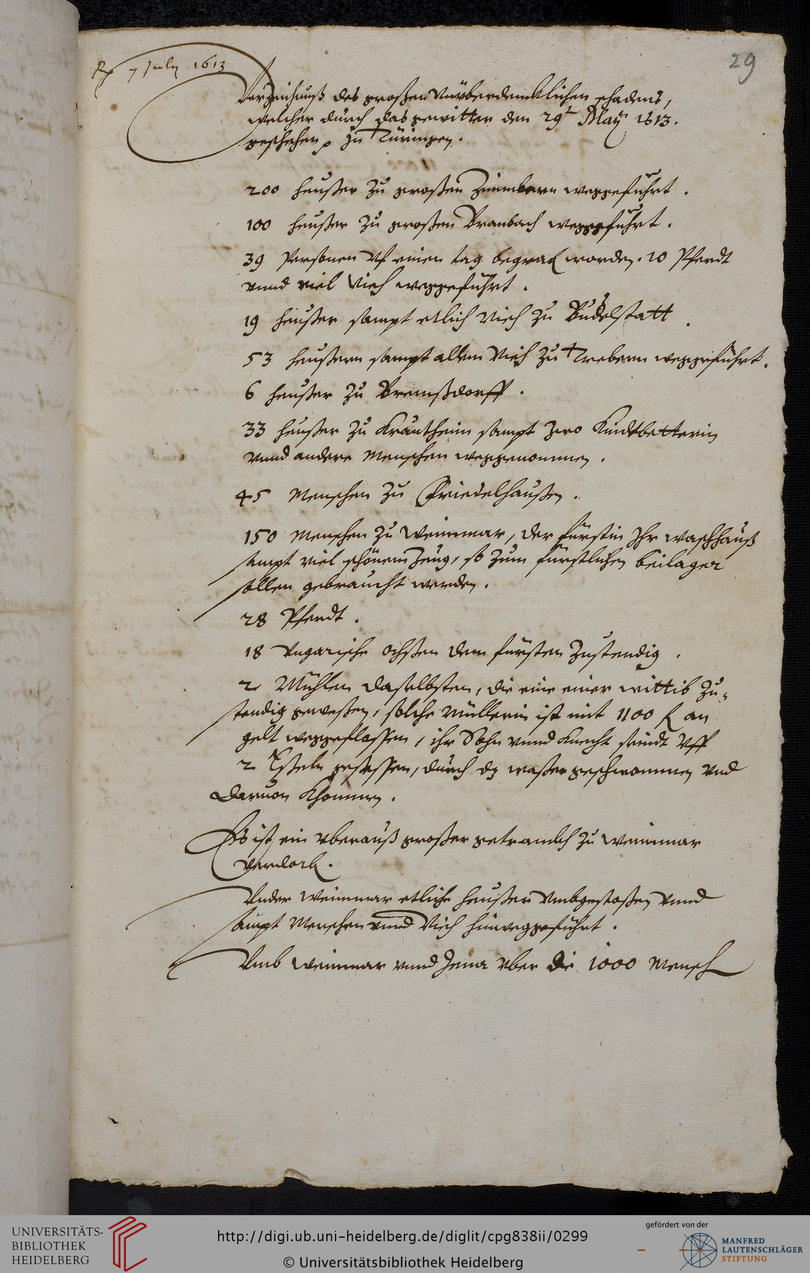 29
Rp 7 July 1613
Verzeichnuß des großen Vnüberdencklichen schadens,
welcher durch das gewitter den 29t May 1613.
geschehen, zu Türingen.
200 heußer zu großen Zimmbern weggeführt.
100 heußer zu großen Brambach weggeführt.
39 Personen vf einen tag begrab worden. 20 Pferdt
vnnd viel Vieh weggeführt.
19 heußer sampt etlich Vieh zu Budelstatt.
53 heußern sampt allem Vieh zu Trebern weggeführt.
6 heußer zu Bremßdorff.
33 heußer zu Krautheim sampt zwo Kindtbetterin
vnnd andere Menschen weggenommen.
45 Menschen zu Grievelhaußen.
150 Menschen zu Weinmar, der fürstin Ihr waschhauß
sampt viel schönem Zeug, so zum fürstlichen beilager
sollen gebraucht werden.
28 Pferdt.
18 Vngarische Ochsen dem fürsten Zustendig.
2 Mühlen daselbsten, die eine einer wittib Zu-
stendig geweßen, solche Müllerin ist mit 1100 f an
gelt weggeflossen, ihr Sohn vnnd Knecht seindt vff
2 Eseln gesessen, durch dz waßer geschwommen vnd
daruon khommen.
Es ist ein vberauß großer getraidich zu Weinmar
verdorb.
Vnder Weinmar etliche heußer vmbgestoßen vnnd
sampt Menschen vnnd Vieh hinweggeführt.
Vmb Weinmar vnnd Jena vber die 1000 Mensch
UNIVERSITÄTS-
BIBLIOTHEK
HEIDELBERG
http://digi.ub.uni-heidelberg.de/diglit/cpg838ii/0299
© Universitätsbibliothek Heidelberg
gefördert von der
MANFRED
LAUTENSCHLÄGER
STIFTUNG